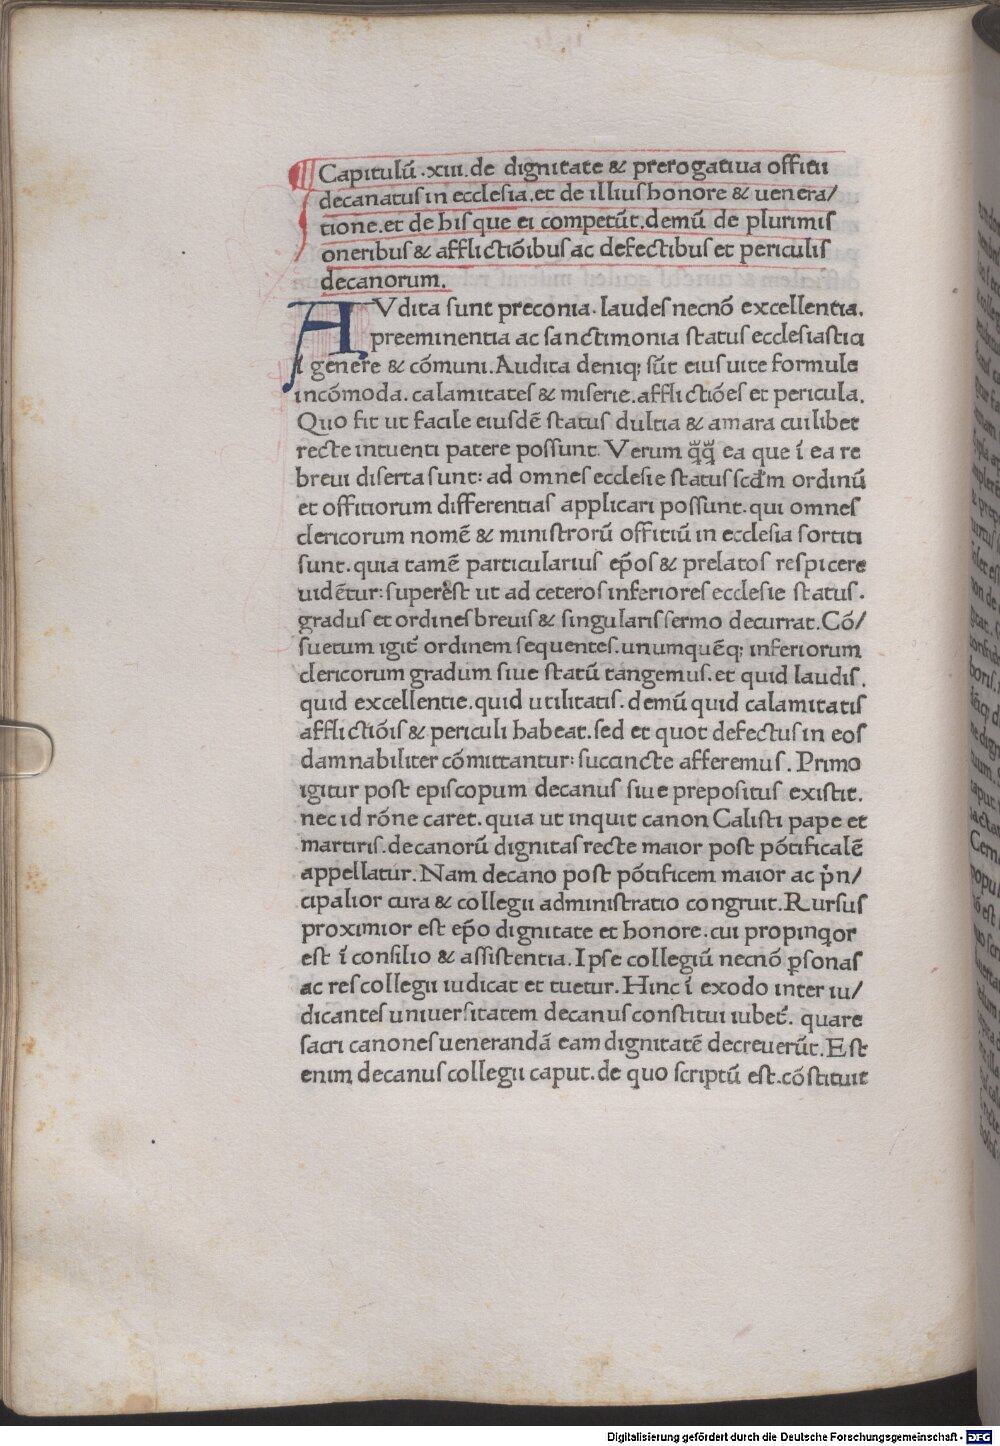 Capitulū .xiii. de dignitate & prerogatiua offitii
decanatus in ecclesia. et de illius honore & uenera/
tione. et de his que ei competūt. demū de plurimis
oneribus & afflictiōibus ac defectibus et periculis
decanorum.
AVdita sunt preconia. laudes necnō excellentia.
preeminentia ac sanctimonia status ecclesiastici
ī genere & cōmuni. Audita deniq; sūt eius uite formule
incōmoda. calamitates & miserie. afflictiōes et pericula.
Quo fit ut facile eiusdē status dultia & amara cuilibet
recte intuenti patere possunt. Verum q̄q̄ ea que ī ea re
breui diserta sunt: ad omnes ecclesie status scd̄m ordinū
et offitiorum differentias applicari possunt. qui omnes
clericorum nomē & ministrorū offitiū in ecclesia sortiti
sunt. quia tamē particularius ep̄os & prelatos respicere
uidētur: superest ut ad ceteros inferiores ecclesie status.
gradus et ordines breuis & singularis sermo decurrat. Cō/
suetum igit̄ ordinem sequentes. unumquēq; inferiorum
clericorum gradum siue statū tangemus. et quid laudis.
quid excellentie. quid utilitatis. demū quid calamitatis
afflictiōis & periculi habeat. sed et quot defectus in eos
damnabiliter cōmittantur: succincte afferemus. Primo
igitur post episcopum decanus siue prepositus existit.
nec id rōne caret. quia ut inquit canon Calisti pape et
martiris. decanorū dignitas recte maior post pōtificalē
appellatur. Nam decano post pōtificem maior ac p̄n/
cipalior cura & collegii administratio congruit. Rursus
proximior est ep̄o dignitate et honore. cui propinqor
est ī consilio & assistentia. Ipse collegiū necnō ꝑsonas
ac res collegii iudicat et tuetur. Hinc ī exodo inter iu/
dicantes uniuersitatem decanus constitui iubet̄. quare
sacri canones uenerandā eam dignitatē decreuerūt. Est
enim decanus collegii caput. de quo scriptū est. cōstituit
Digitalisierung gefördert durch die Deutsche Forschungsgemeinschaft - DFG